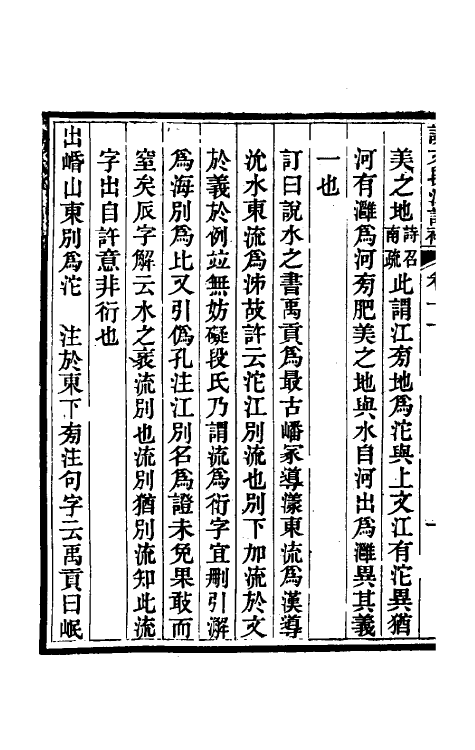 美之地詩召南疏此謂江旁地爲沱與上文江有沱異猶
河有灉爲河旁肥美之地與水自河出爲灉異其義
一也
訂曰說水之書禹貢爲最古嶓冢導漾東流爲漢導
沇水東流爲泲故許云沱江別流也別下加流於文
於義於例竝無妨礙段氏乃謂流爲衍字宜刪引澥
爲海別爲比又引僞孔注江別名爲證未免果敢而
窒矣𠂢字解云水之衺流別也流別猶別流知此流
字出自許意非衍也
出崏山東別爲沱　注於東下旁注句字云禹貢曰岷